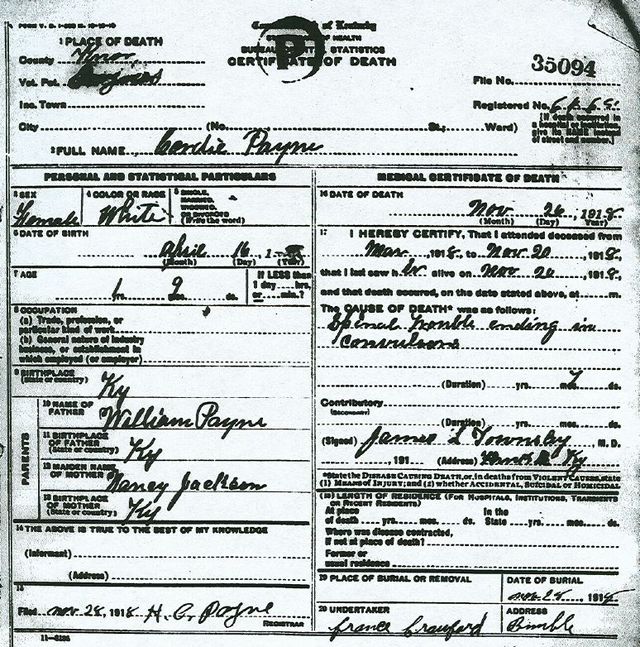 FORM V. S. 1
Commonwealth of Kentucky
STATE BOARD OF HEALTH
BUREAU OF VITAL STATISTICS
CERTIFICATE OF DEATH
P
1 PLACE OF DEATH
County Knox
Vot. Pct.
Inc. Town
City (No. St.; Ward)
File No. 35094
Registered No.
[If death occurred in a hospital or institution give its NAME instead of street and number.]
2 FULL NAME Cordie Payne
PERSONAL AND STATISTICAL PARTICULARS
3 SEX
Female
4 COLOR OR RACE
White
5 SINGLE,
MARRIED,
WIDOWED,
OR DIVORCED
(Write the word)
6 DATE OF BIRTH
April 16, 1
(Month) (Day) (Year)
7 AGE
1 yrs. 9 mos. ds.
If LESS than
1 day hrs.
or min.?
8 OCCUPATION
(a) Trade, profession, or
particular kind of work
(b) General nature of industry
business, or establishment in
which employed (or employer)
9 BIRTHPLACE
(State or country) Ky
PARENTS
10 NAME OF
FATHER William Payne
11 BIRTHPLACE
OF FATHER
(State or country) Ky
12 MAIDEN NAME
OF MOTHER Nancy Jackson
13 BIRTHPLACE
OF MOTHER
(State or country) Ky
14 THE ABOVE IS TRUE TO THE BEST OF MY KNOWLEDGE
(Informant)
(Address)
15
Filed Nov 28, 1918 H. C. Payne
REGISTRAR
11-6185
MEDICAL CERTIFICATE OF DEATH
16 DATE OF DEATH
Nov 26, 1918
(Month) (Day) (Year)
17 I HEREBY CERTIFY, That I attended deceased from
Mar, 1918, to Nov 20, 1918,
that I last saw h alive on Nov 20, 1918,
and that death occurred, on the date stated above, at m.
The CAUSE OF DEATH* was as follows:
Spinal trouble ending in
convulsions
(Duration) yrs. mos. ds.
Contributory
(SECONDARY)
(Duration) yrs. mos. ds.
(Signed) James L Townsley M. D.
, 191 (Address) Ky
*State the DISEASE CAUSING DEATH, or, in deaths from VIOLENT CAUSES, state
(1) MEANS OF INJURY; and (2) whether ACCIDENTAL, SUICIDAL or HOMICIDAL.
(18) LENGTH OF RESIDENCE (FOR HOSPITALS, INSTITUTIONS, TRANSIENTS
OR RECENT RESIDENTS)
At place of death yrs. mos. ds. In the State yrs. mos. ds.
Where was disease contracted,
if not at place of death?
Former or
usual residence
19 PLACE OF BURIAL OR REMOVAL
DATE OF BURIAL
Nov 28, 1918
20 UNDERTAKER
France Crawford
ADDRESS
Bimble